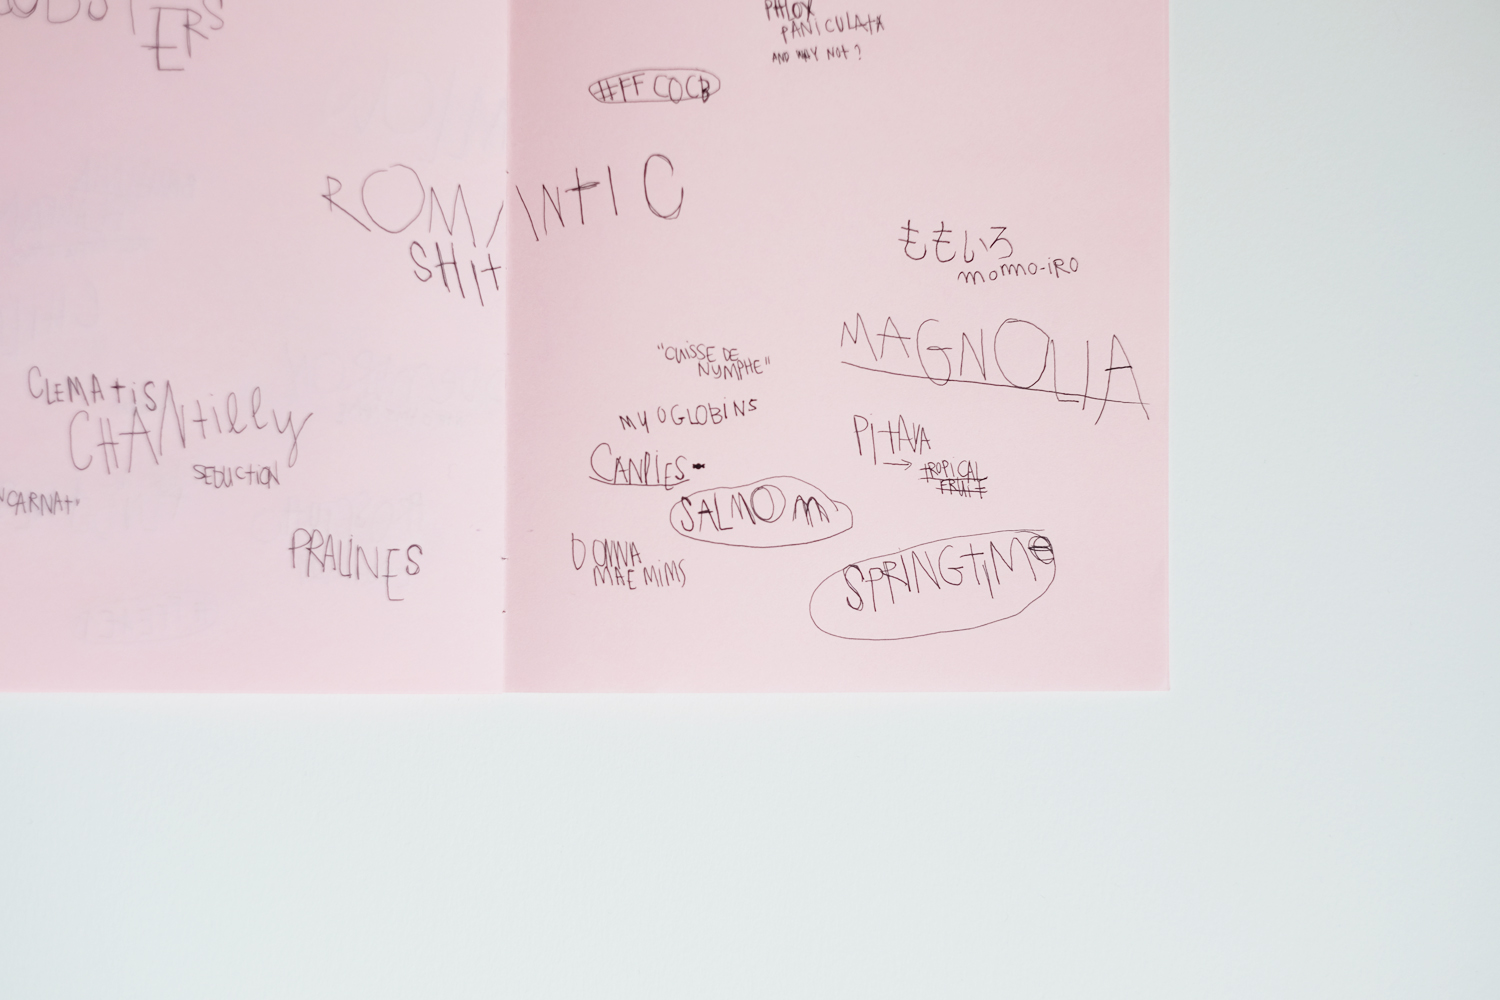 LOBSTERS
PHLOX
PANICULATA
AND WHY NOT?
#FFC0CB
ROMANTIC
SHIT
ももいろ
MOMO-IRO
MAGNOLIA
"CUISSE DE
NYMPHE"
MYOGLOBINS
CANDIES
PITAYA
→ TROPICAL
FRUIT
SALMON
DONNA
MAE MIMS
SPRINGTIME
CLEMATIS
CHANtilly
SEDUCTION
NCARNAT"
PRALINES